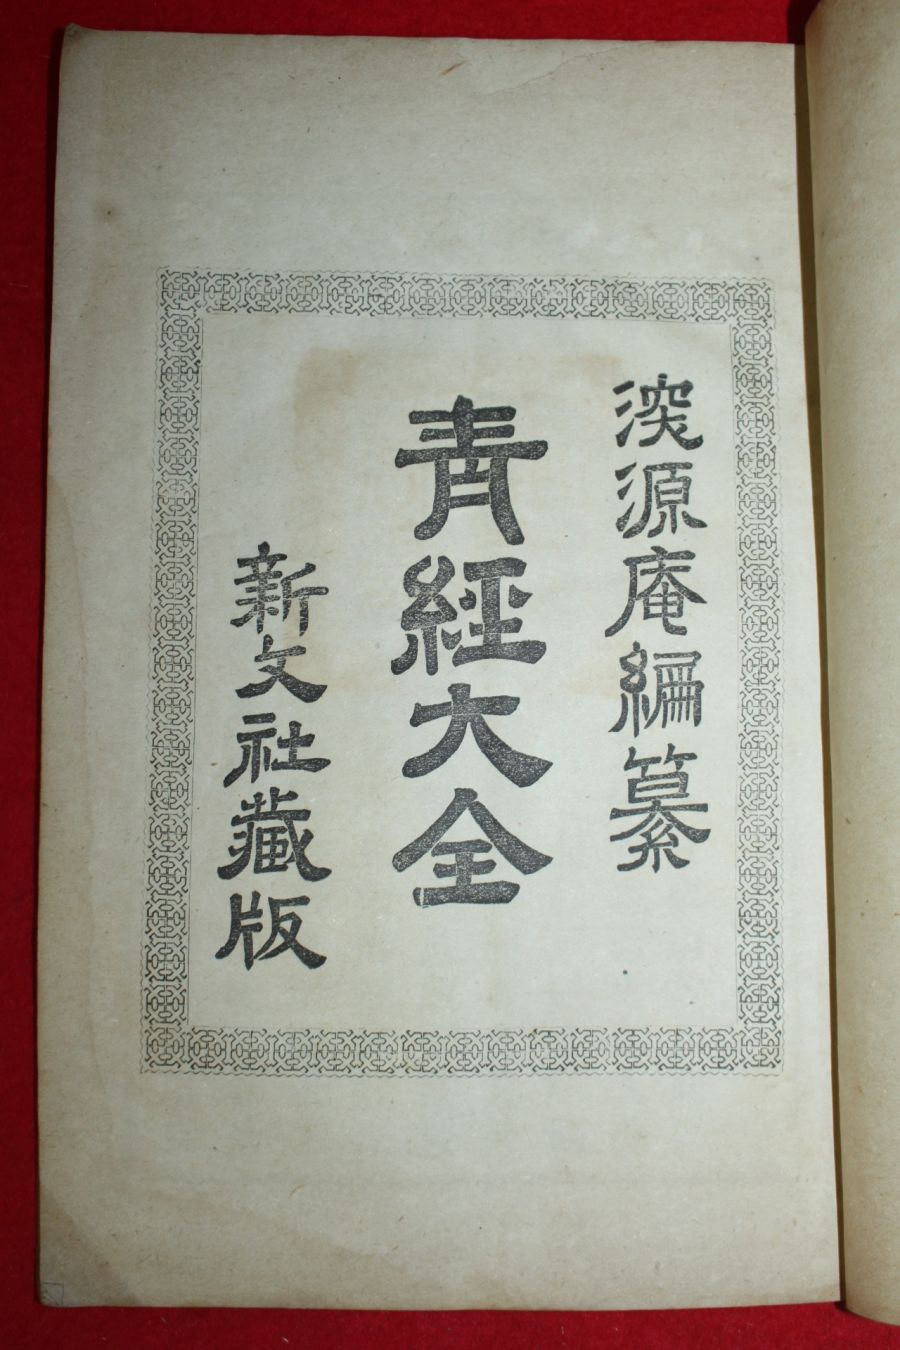 湥源庵編纂
靑經大全
新文社藏版